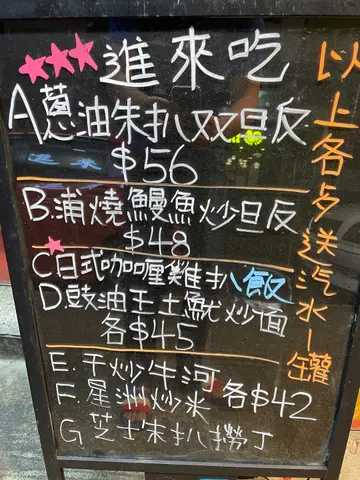 進來吃
A蔥油朱扒双旦反
$56
B.浦燒鰻魚炒旦反
$48
C日式咖喱雞扒飯
D豉油王土魷炒面
各$45
E.干炒牛河
F.星洲炒米 各$42
G芝士朱扒撈丁
以上各歺送汽水一罐